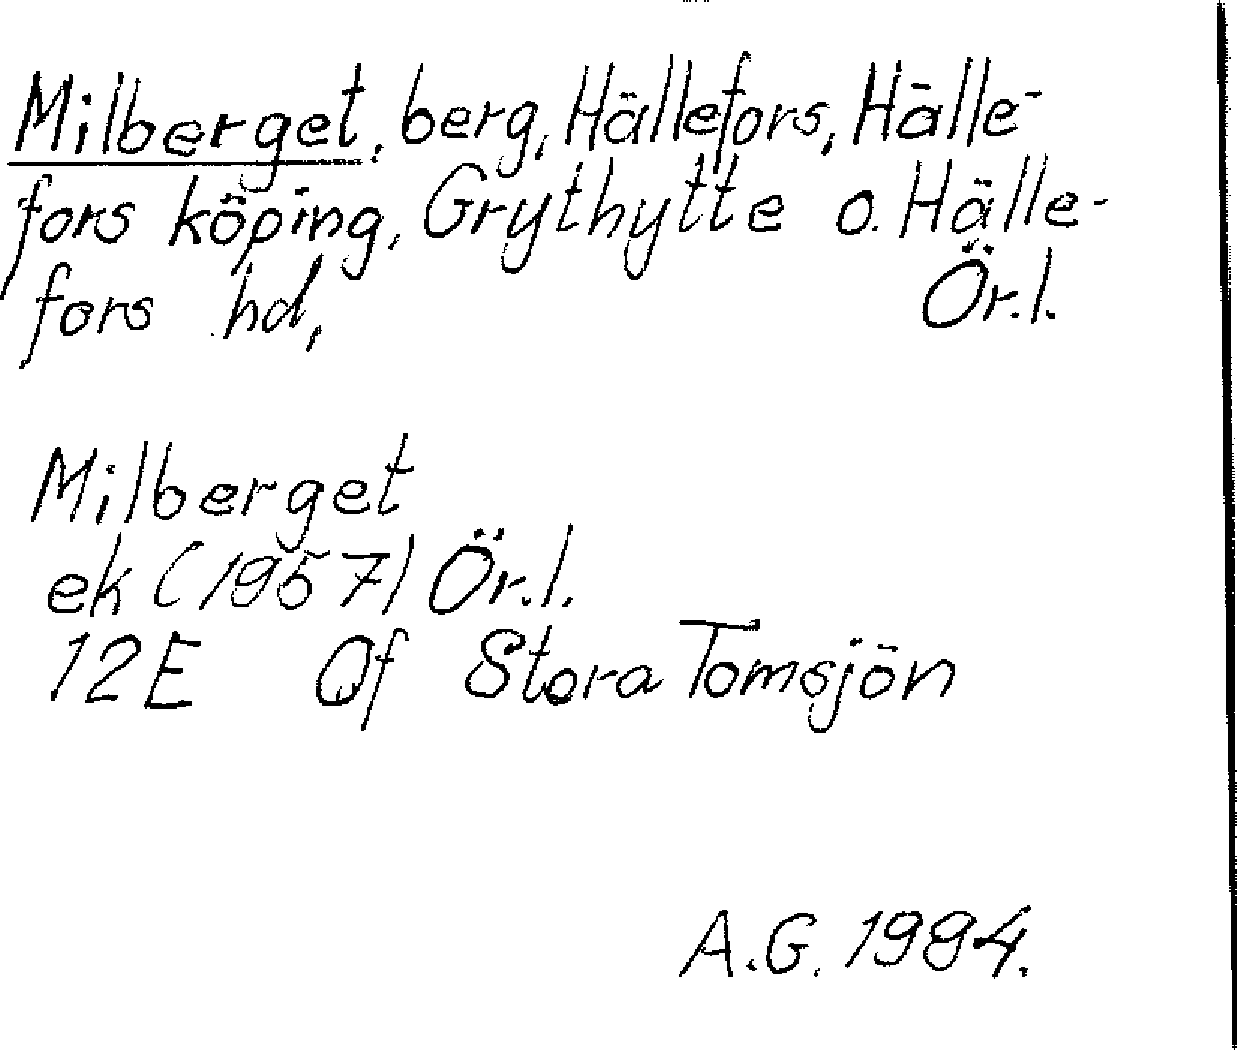 Milberget, berg, Hällefors, Hälle-
fors köping, Grythytte o. Hälle-
fors hd, Ör.l.
Milberget
ek (1957) Ör.l.
12E 0f Stora Tomsjön
A.G. 1984.